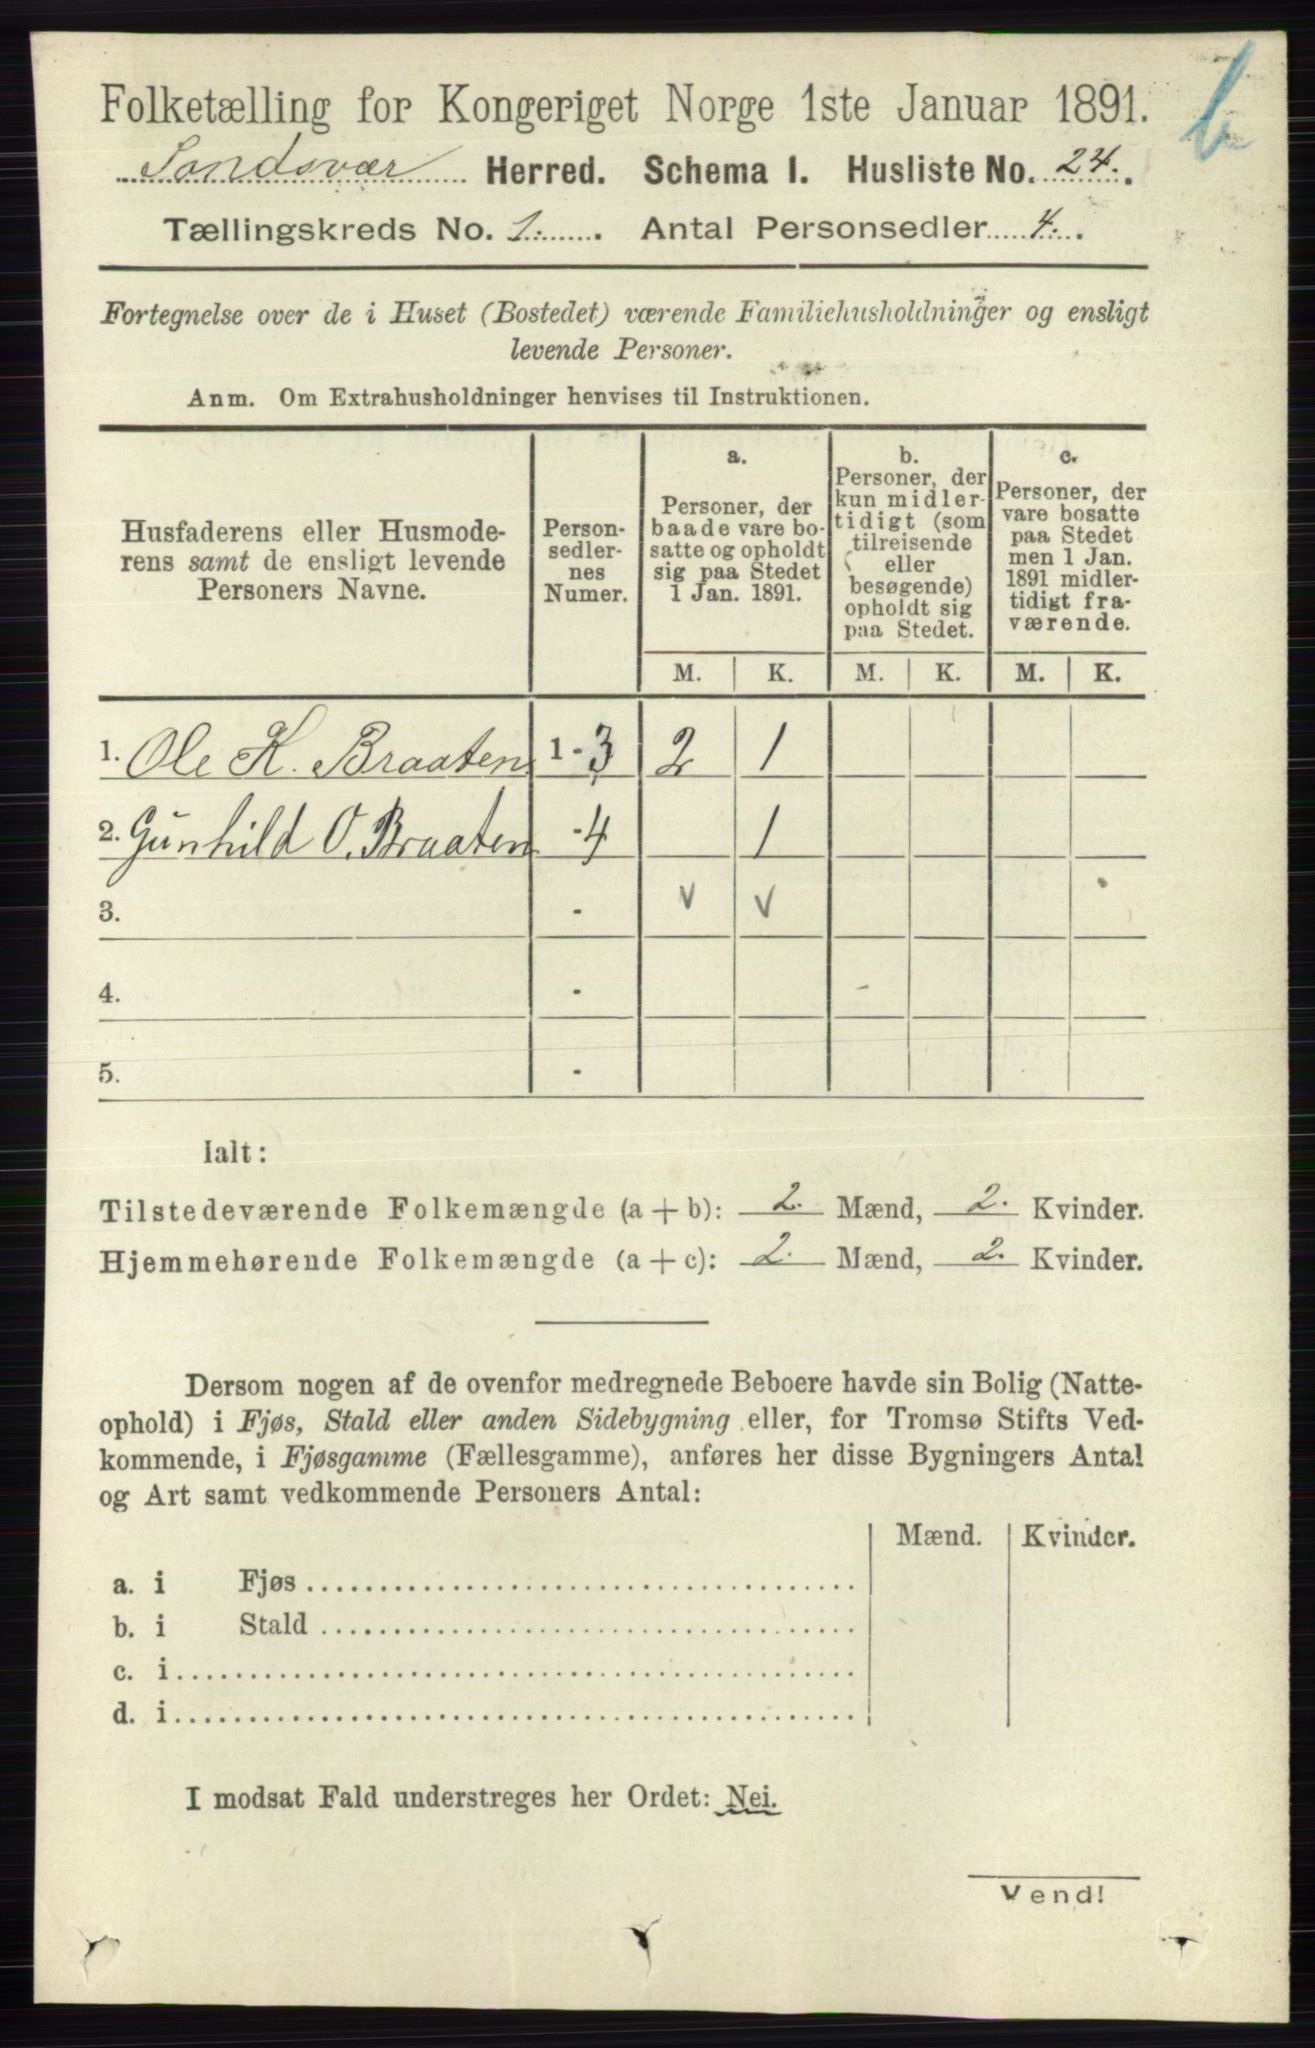 b
Folketælling for Kongeriget Norge 1ste Januar 1891.
Sandsvær Herred. Schema 1. Husliste No. 24.
Tællingskreds No. 1. Antal Personsedler 4.
Fortegnelse over de i Huset (Bostedet) værende Familiehusholdninger og ensligt
levende Personer.
Anm. Om Extrahusholdninger henvises til Instruktionen.
Husfaderens eller Husmode-
rens samt de ensligt levende
Personers Navne.
Person-
sedler-
nes
Numer.
a.
Personer, der
baade vare bo-
satte og opholdt
sig paa Stedet
1 Jan. 1891.
b.
Personer, der
kun midler-
tidigt (som
tilreisende
eller
besøgende)
opholdt sig
paa Stedet.
c.
Personer, der
vare bosatte
paa Stedet
men 1 Jan.
1891 midler-
tidigt fra-
værende.
M. K. M. K. M. K.
1. Ole K. Braaten 1-3 2 1
2. Gunhild O. Braaten -4 1
3. - v v
4. -
5. -
Ialt:
Tilstedeværende Folkemængde (a + b): 2. Mænd, 2. Kvinder.
Hjemmehørende Folkemængde (a + c): 2. Mænd, 2. Kvinder.
Dersom nogen af de ovenfor medregnede Beboere havde sin Bolig (Natte-
ophold) i Fjøs, Stald eller anden Sidebygning eller, for Tromsø Stifts Ved-
kommende, i Fjøsgamme (Fællesgamme), anføres her disse Bygningers Antal
og Art samt vedkommende Personers Antal:
Mænd. Kvinder.
a. i Fjøs
b. i Stald
c. i
d. i
I modsat Fald understreges her Ordet: Nei.
Vend!